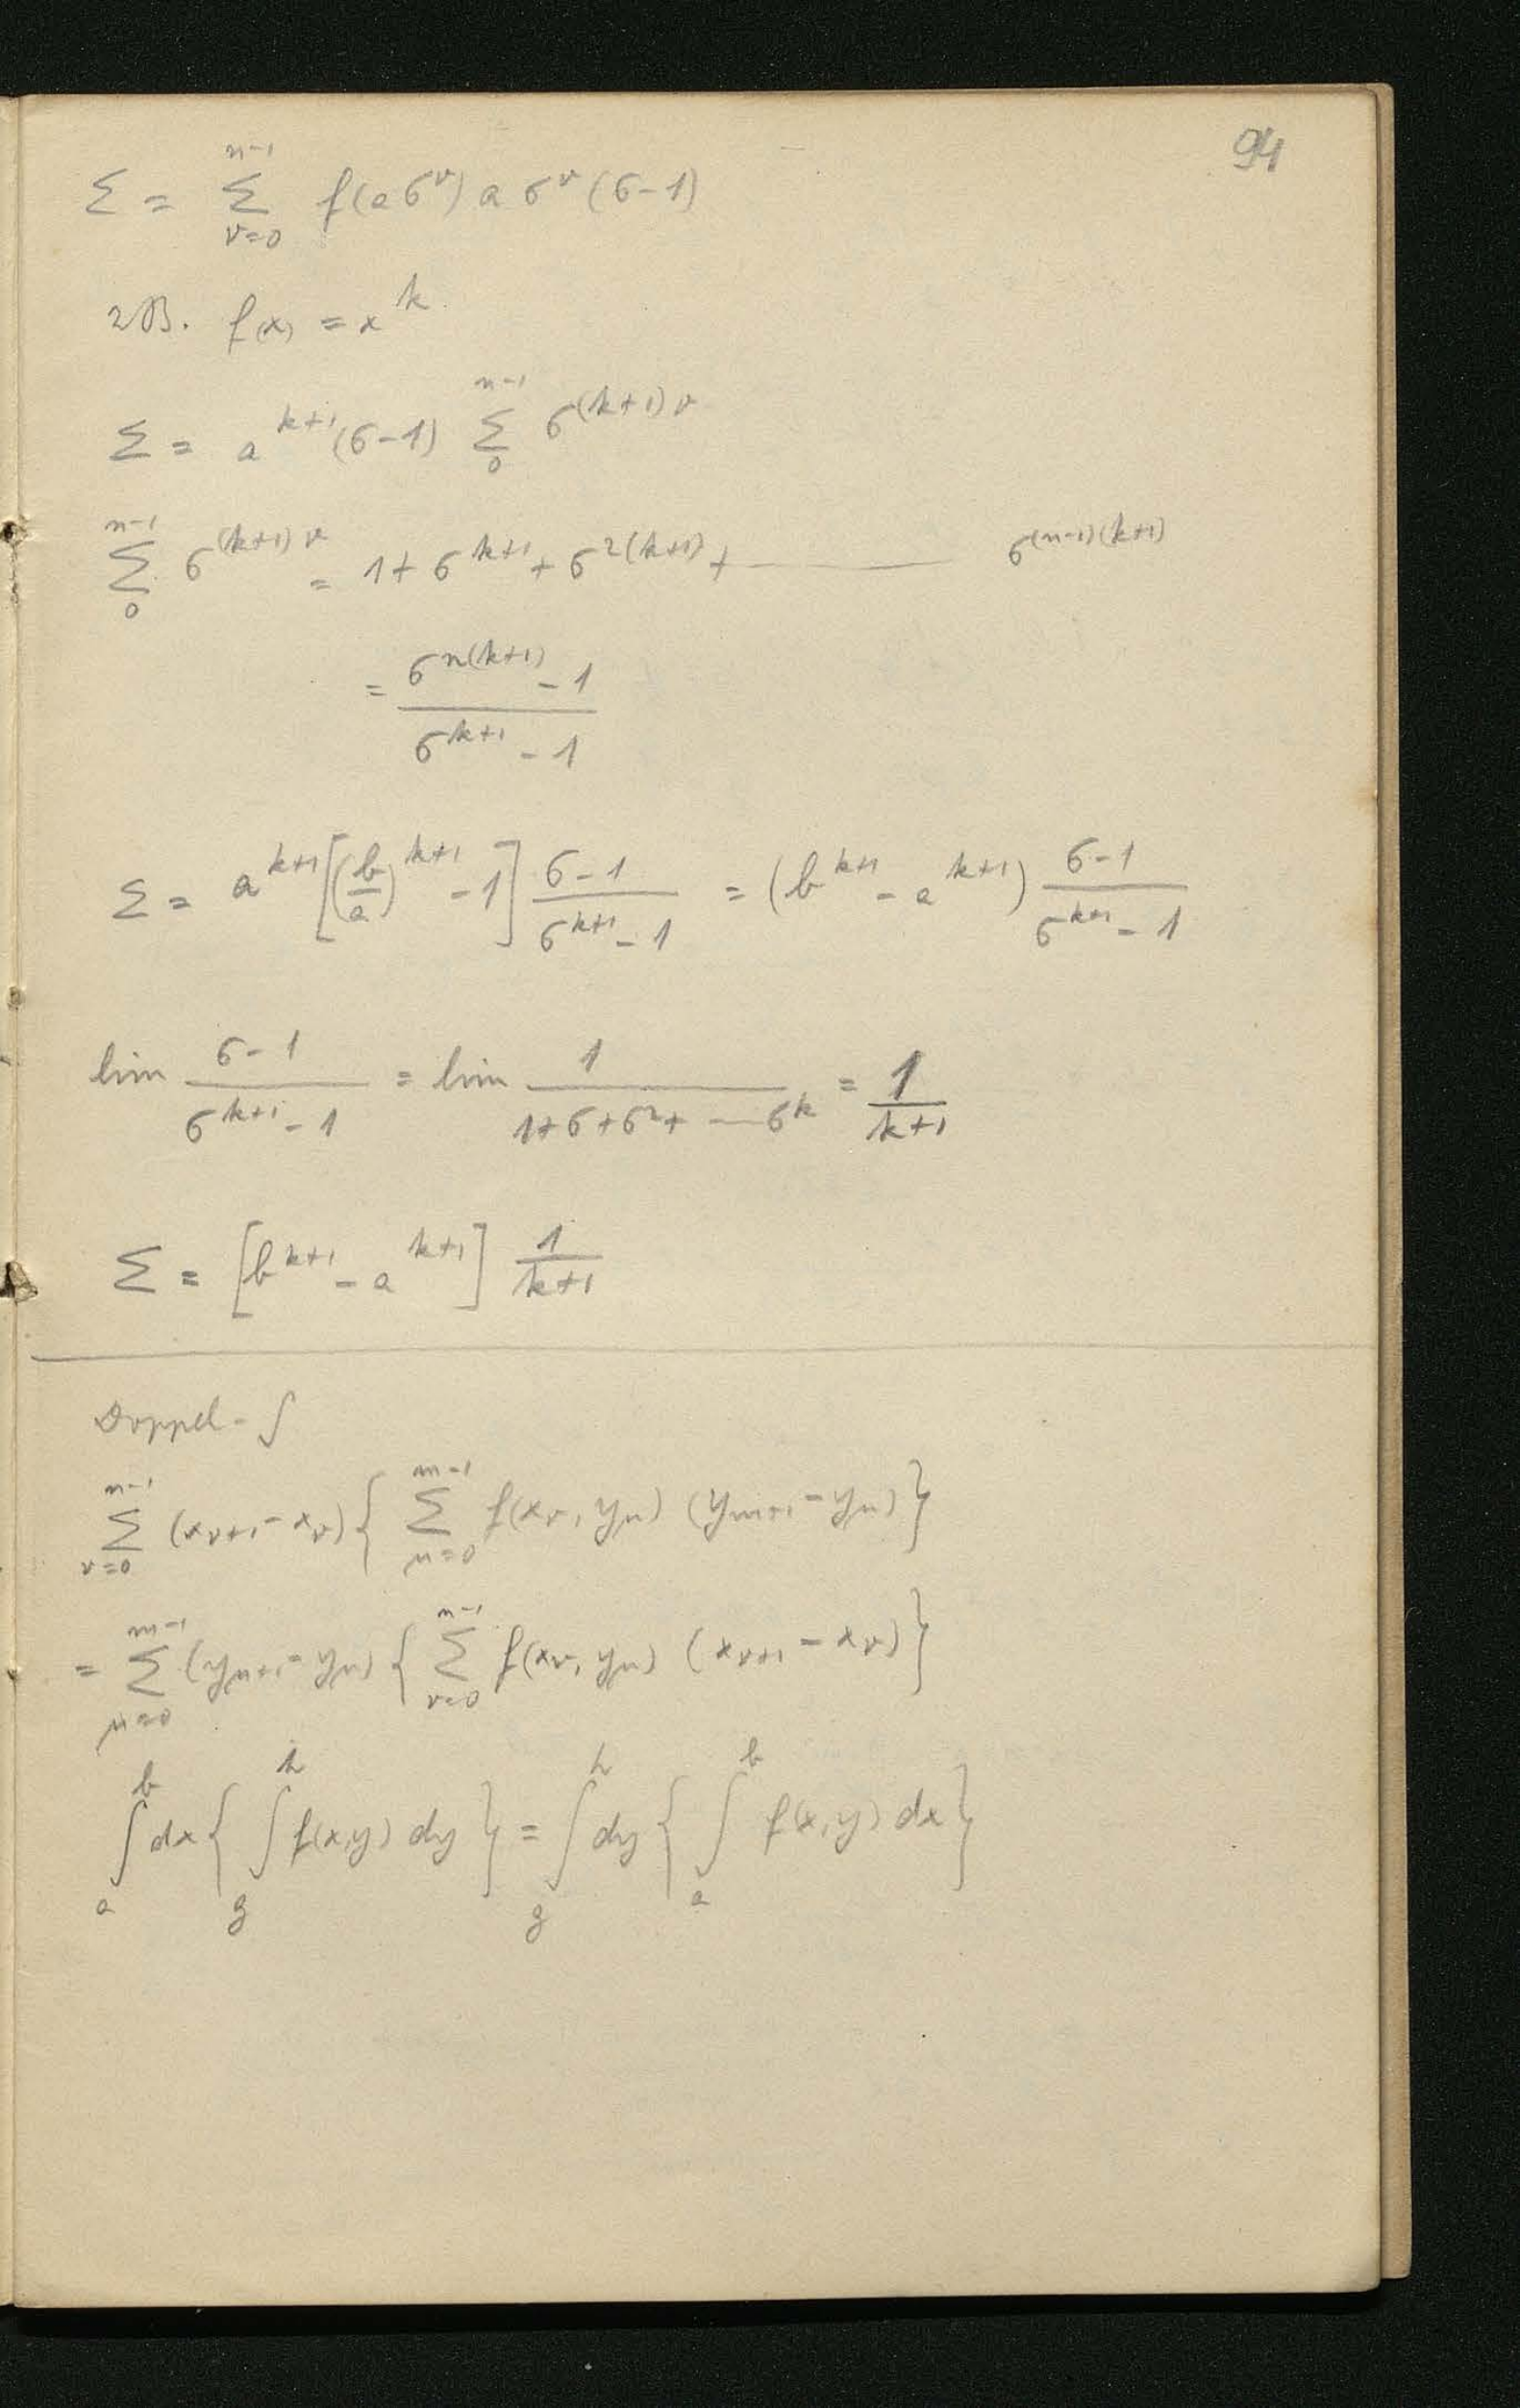 94
Σ = \sum_{ν=0}^{n-1} f(aσ^ν) a σ^ν (σ-1)
zB. f(x) = x^k.
Σ = a^{k+1} (σ-1) \sum_{0}^{n-1} σ^{(k+1)ν}
\sum_{0}^{n-1} σ^{(k+1)ν} = 1 + σ^{k+1} + σ^{2(k+1)} + ——— σ^{(n-1)(k+1)}
= \frac{σ^{n(k+1)} - 1}{σ^{k+1} - 1}
Σ = a^{k+1} [(\frac{b}{a})^{k+1} - 1] \frac{σ-1}{σ^{k+1} - 1} = (b^{k+1} - a^{k+1}) \frac{σ-1}{σ^{k+1} - 1}
lim \frac{σ-1}{σ^{k+1} - 1} = lim \frac{1}{1+σ+σ^2+ — σ^k} = \frac{1}{k+1}
Σ = [b^{k+1} - a^{k+1}] \frac{1}{k+1}
Doppel-∫
\sum_{ν=0}^{n-1} (x_{ν+1} - x_ν) { \sum_{μ=0}^{m-1} f(x_ν, y_μ) (y_{μ+1} - y_μ) }
= \sum_{μ=0}^{m-1} (y_{μ+1} - y_μ) { \sum_{ν=0}^{n-1} f(x_ν, y_μ) (x_{ν+1} - x_ν) }
\int_a^b dx { \int_g^h f(x,y) dy } = \int_g^h dy { \int_a^b f(x,y) dx }